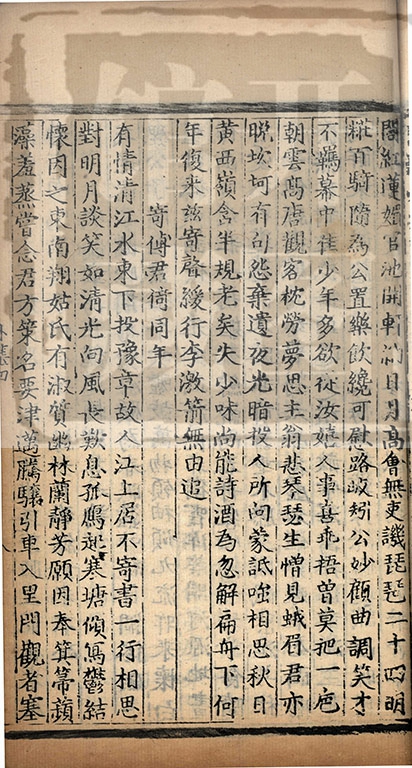 閤紅蓮媚官池開軒納日月高會無吏譏琵琶二十四明
糚百騎隨爲公置樂飲纔可慰路岐矧公妙顧曲調笑才
不羈幕中佳少年多欲從汝嬉人事喜乖捂曾莫把一巵
朝雲高唐觀客枕勞夢思主翁悲琴瑟生憎見蛾眉君亦
晩坎坷有句怨棄遺夜光暗投人所向蒙詆嗤相思秋日
黄西嶺含半規老矣失少味尚能詩酒爲忽解扁舟下何
年復來兹寄聲緩行李激箭無由追
寄傅君倚同年
有情清江水東下投豫章故人江上居不寄書一行相思
對明月談笑如清光向風長歎息孤鴈起寒塘傾寫鬱結
懷因之東南翔姑氏有淑質幽林蘭静芳願因奉箕箒蘋
藻羞蒸嘗念君方策名要津邁騰驤引車入里門觀者塞